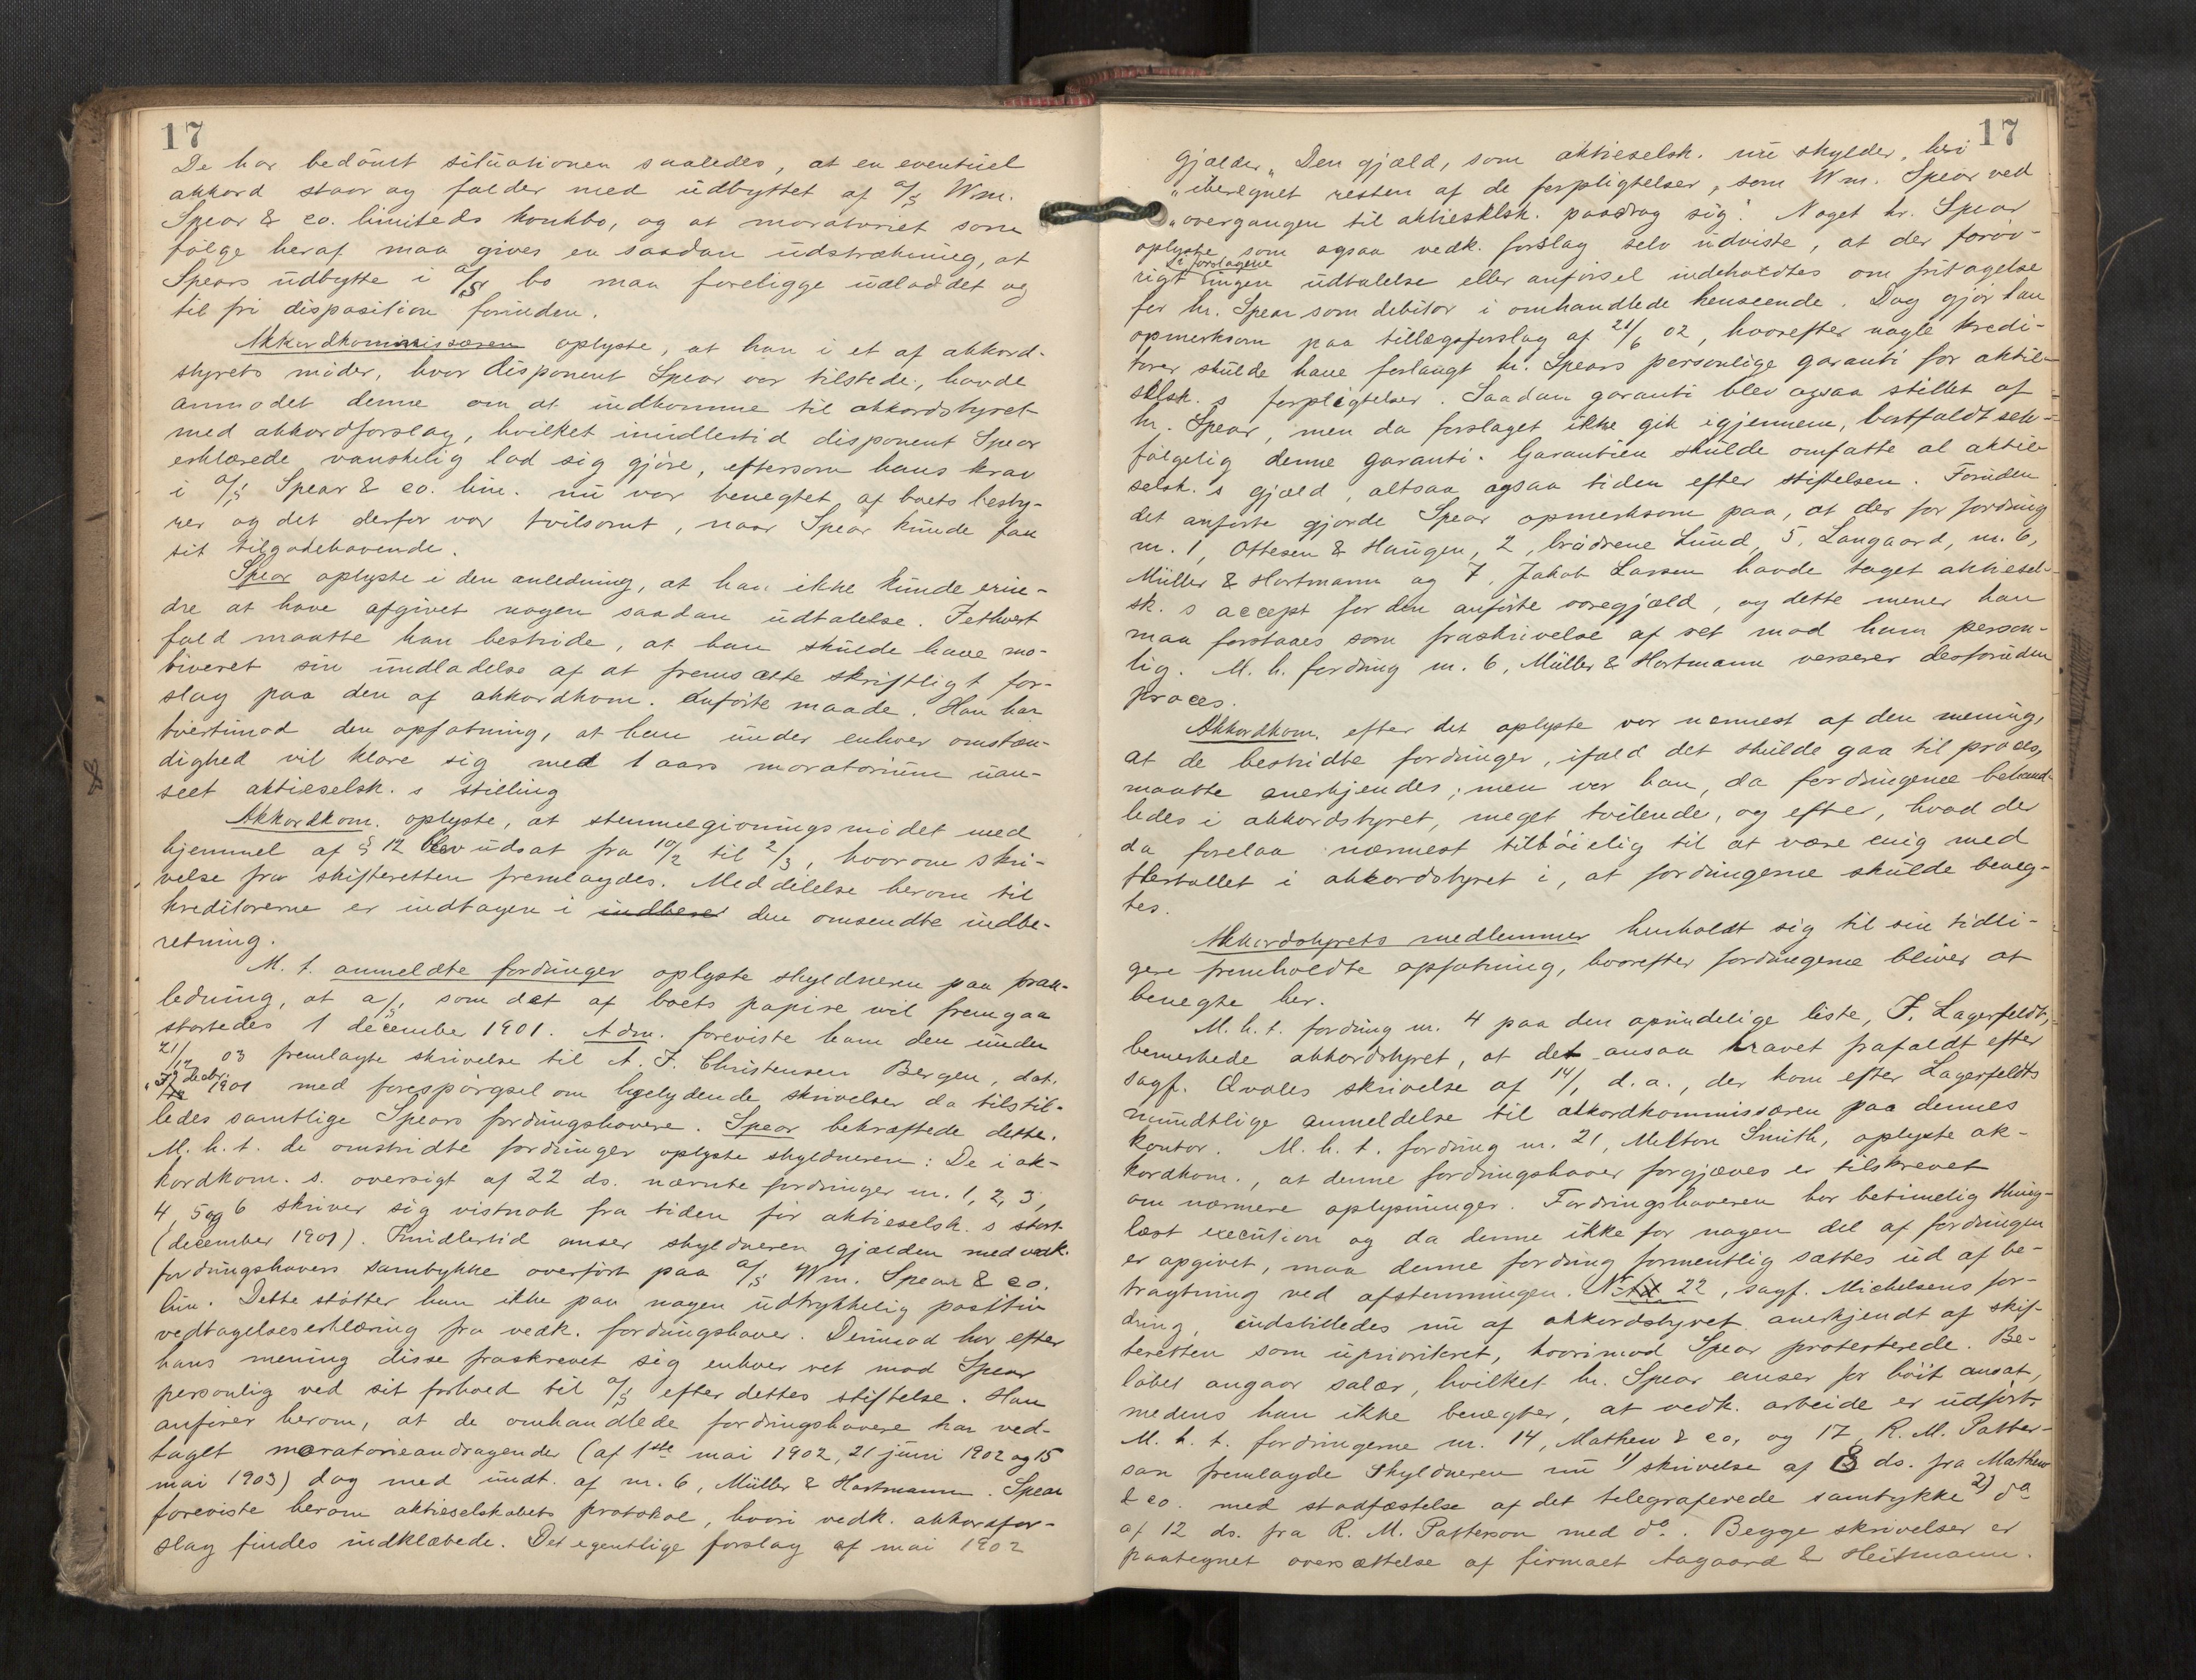 17
De har bedömt situationen saaledes, at en eventuel
akkord staar og falder med udbyttet af a/s Wm.
Spear & co. limiteds konkbo, og at moratoriet som
følge heraf maa gives en saadan udstrækning, at
Spears udbytte i a/s bo maa foreligge udloddet og
til fri disposition forinden.
Akkordkommissæren oplyste, at han i et af akkord-
styrets møder, hvor disponent Spear var tilstede, havde
anmodet denne om at indkomme til akkordstyret
med akkordforslag, hvilket imidlertid disponent Spear
erklærede vanskelig lod sig gjøre, eftersom hans krav
i a/s Spear & co. lim. nu var benegtet af boets besty-
rer og det derfor var tvilsomt, naar Spear kunde faa
sit tilgodehavende.
Spear oplyste i den anledning, at han ikke kunde erin-
dre at have afgivet nogen saadan udtalelse. Iethvert
fald maatte han bestride, at han skulde have mo-
tiveret sin undladelse af at fremsætte skriftligt for-
slag paa den af akkordkom. anførte maade. Han har
tvertimod den opfatning, at han under enhver omstæn-
dighed vil klare sig med 1 aars moratorium uan-
seet aktieselsk. s stilling
Akkordkom. oplyste, at stemmegivningsmødet med
hjemmel af § 12 blev udsat fra 10/2 til 2/3, hvorom skri-
velse fra skifteretten fremlagdes. Meddelelse herom til
kreditorerne er indtagen i indbere den omsendte indbe-
retning.
M. t. anmeldte fordringer oplyste skyldneren paa foran-
ledning, at a/s, som det af boets papire vil fremgaa
startedes 1 december 1901. Adm. foreviste ham den under
21/12 03 fremlagte skrivelse til A. F. Christensen Bergen, dat.
decbr. 1901 med forespörgsel om ligelydende skrivelser da tilstil-
ledes samtlige Spears fordringshavere. Spear bekræftede dette.
M. h. t. de omstridte fordringer oplyste skyldneren: De i ak-
kordkom. s. oversigt af 22 ds. nævnte fordringer nr. 1, 2, 3,
4, 5 og 6 skriver sig vistnok fra tiden før aktieselsk. s start
(december 1901). Imidlertid anser skyldneren gjælden med vedk.
fordringshavers samtykke overført paa a/s Wm. Spear & co.
lim. Dette støtter han ikke paa nogen udtrykkelig positiv
vedtagelseserklæring fra vedk. fordringshaver. Derimod har efter
hans mening disse fraskrevet sig enhver ret mod Spear
personlig ved sit forhold til a/s efter dettes stiftelse. Han
anfører herom, at de omhandlede fordringshavere har ved-
taget moratorieandragender (af 1ste mai 1902, 21 juni 1902 og 15
mai 1903) dog med undt. af nr. 6, Müller & Hartmann. Spear
foreviste herom aktieselskabets protokol, hvori vedk. akkordfor-
slag findes indklæbede. Det egentlige forslag af mai 1902
17
gjælder „Den gjæld, som aktieselsk. nu skylder, heri
„iberegnet resten af de forpligtelser, som Wm. Spear ved
„overgangen til aktieselsk. paadrog sig.“ Noget hr. Spear
oplyste som ogsaa vedk. forslag selv udviste, at der forøv-
i forslagene
rigt ingen udtalelse eller anførsel indeholdtes om fritagelse
for hr. Spear som debitor i omhandlede henseende. Dog gjør han
opmerksom paa tillægsforslag af 21/6 02, hvorefter nogle kredi-
torer skulde have forlangt hr. Spears personlige garanti for aktie-
selsk. s forpligtelser. Saadan garanti blev ogsaa stillet af
hr. Spear, men da forslaget ikke gik igjennem, bortfaldt selv-
følgelig denne garanti. Garantien skulde omfatte al aktie-
selsk. s gjæld, altsaa ogsaa tiden efter stiftelsen. Foruden
det anførte gjorde Spear opmerksom paa, at der for fordring
nr. 1, Ottesen & Haugen, 2, brødrene Lund, 5, Langaard, nr. 6,
Müller & Hartmann og 7, Jakob Larsen havde taget aktiesel-
sk. s accept for den anførte varegjæld, og dette mener han
maa forstaaes som fraskrivelse af ret mod ham person-
lig. M. h. fordring nr. 6, Müller & Hartmann verserer desforuden
proces.
Akkordkom. efter det oplyste var nærmest af den mening,
at de bestridte fordringer, ifald det skulde gaa til proces,
maatte anerkjendes; men var han, da fordringerne behand-
ledes i akkordstyret, meget tvilende, og efter, hvad der
da forelaa nærmest tilbøielig til at være enig med
flertallet i akkordstyret i, at fordringerne skulde beneg-
tes.
Akkordstyrets medlemmer henholdt sig til sin tidli-
gere fremholdte opfatning, hvorefter fordringerne bliver at
benegte her.
M. h. t. fordring nr. 4 paa den oprindelige liste, F. Lagerfeldt,
bemerkede akkordstyret, at det ansaa kravet frafaldt efter
sagf. Qvales skrivelse af 14/1 d. a., der kom efter Lagerfeldts
mundtlige anmeldelse til akkordkommissæren paa dennes
kontor. M. h. t. fordring nr. 21, Melton Smith, oplyste ak-
kordkom., at denne fordringshaver forgjæves er tilskrevet
om nærmere oplysninger. Fordringshaveren har betimelig thing-
læst execution og da denne ikke for nogen del af fordringen
er opgivet, maa denne fordring formentlig sættes ud af be-
tragtning ved afstemningen. Nr 22, sagf. Michelsens for-
dring, indstilledes nu af akkordstyret anerkjendt af skif-
teretten som uprioriteret, hvorimod Spear protesterede. Be-
løbet angaar salær, hvilket hr. Spear anser for høit ansat,
medens han ikke benegter, at vedk. arbeide er udført.
M. h. t. fordringerne nr. 14, Mathew & co, og 17, R. M. Patter-
son fremlagde skyldneren nu 1) skrivelse af 8 ds. fra Mathew
& co. med stadfæstelse af det telegraferede samtykke 2) do
af 12 ds. fra R. M. Patterson med do. Begge skrivelser er
paategnet oversættelse af firmaet Aagaard & Heitmann.